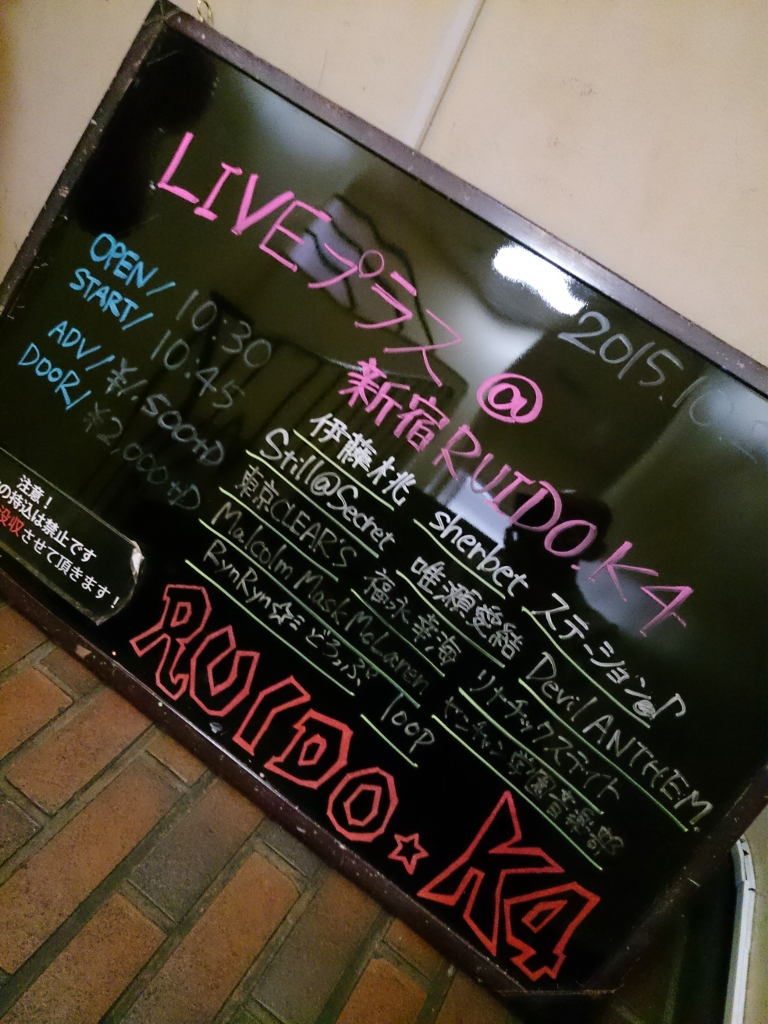 LIVEプラス @
新宿RUIDO.K4
2015.10.
OPEN/ 10:30
START/ 10:45
ADV/ ¥1,500+D
DOOR/ ¥2,000+D
伊藤桃 sherbet ステーション♪
Still@Secret 唯瀬愛結 Devil ANTHEM.
東京CLEAR'S 福永幸海 リナチックステイト
Malcolm Mask McLaren センチャン学園音楽部
RynRyn☆ミどろっぷ loop
RUIDO★K4
注意!
の持込は禁止です
没収させて頂きます!